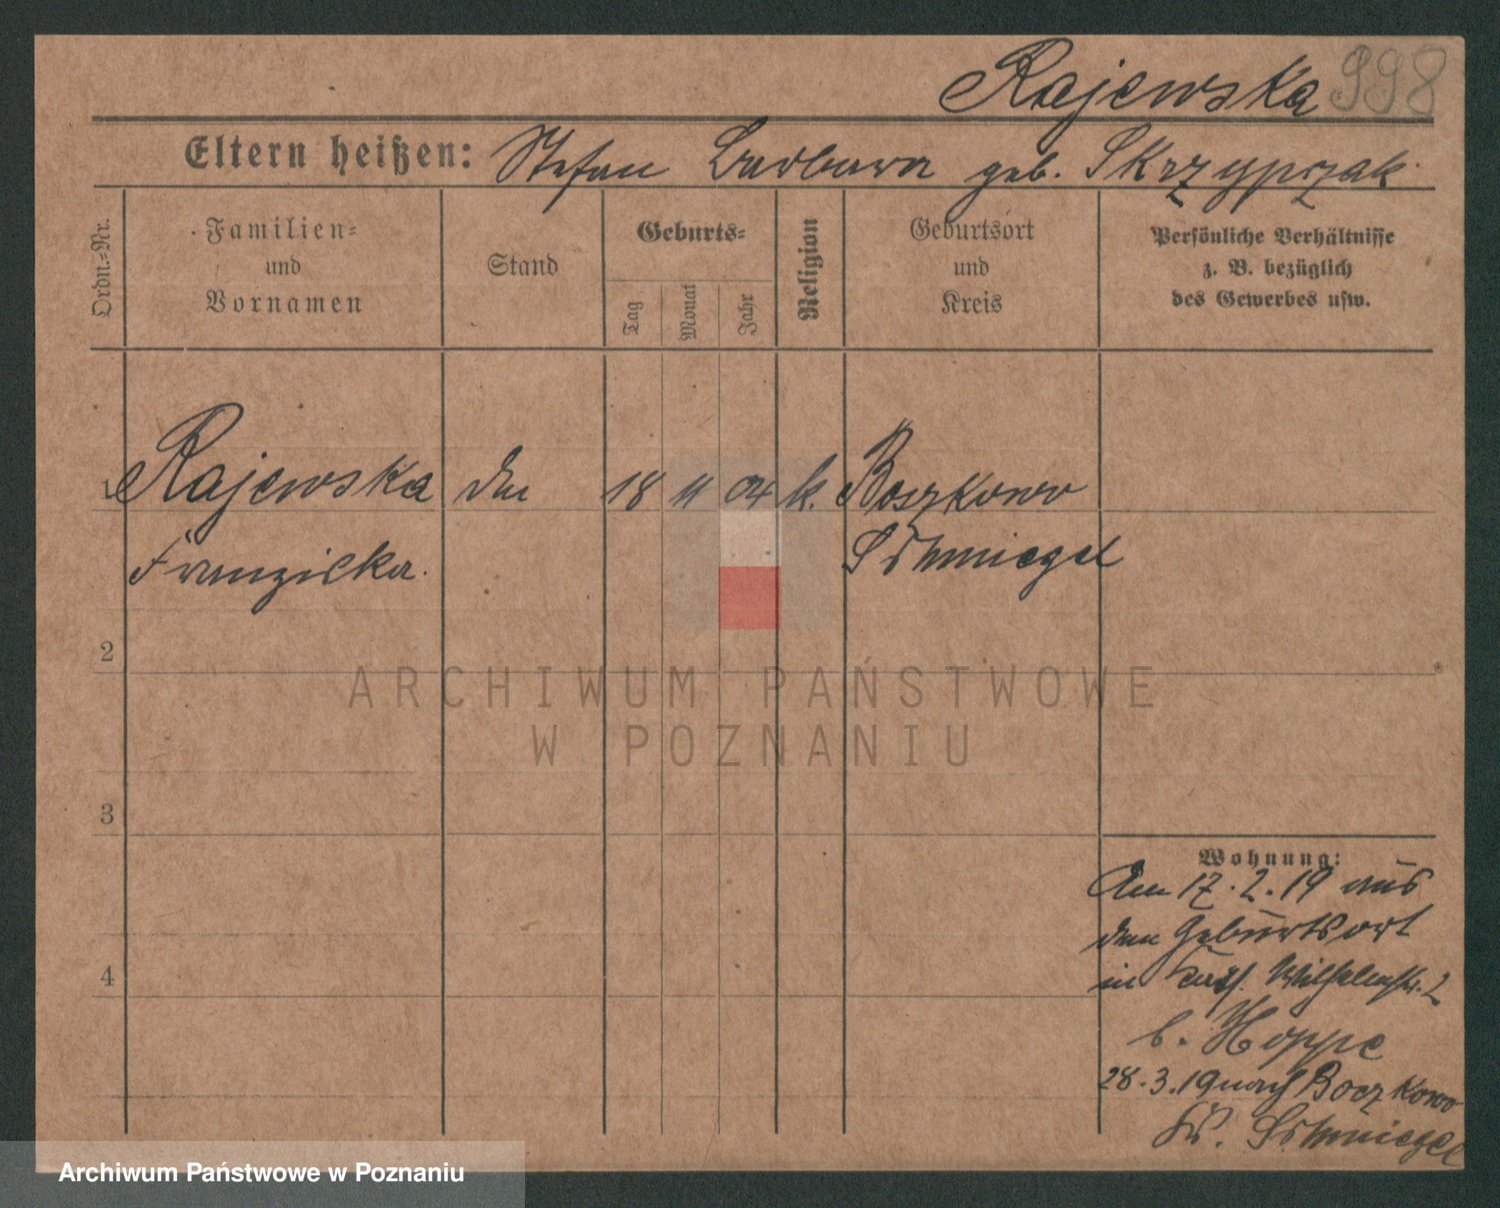 Rajewska 998
Eltern heißen: Stefan Barbara geb. Skrzypczak
Ordn.=Nr.
Familien=
und
Vornamen
Stand
Geburts=
Tag
Monat
Jahr
Religion
Geburtsort
und
Kreis
Persönliche Verhältnisse
z. B. bezüglich
des Gewerbes usw.
1 Rajewska 18 11 04 k. Boszkowo
Franziska. Schmiegel
2
3
4
Wohnung:
Am 17.2.19 aus
dem Geburtsort
in Wilhelmstr. 2
b. Hoppe
28.3.19 nach Boczkowo
Kr. Schmiegel
ARCHIWUM PAŃSTWOWE
W POZNANIU
Archiwum Państwowe w Poznaniu